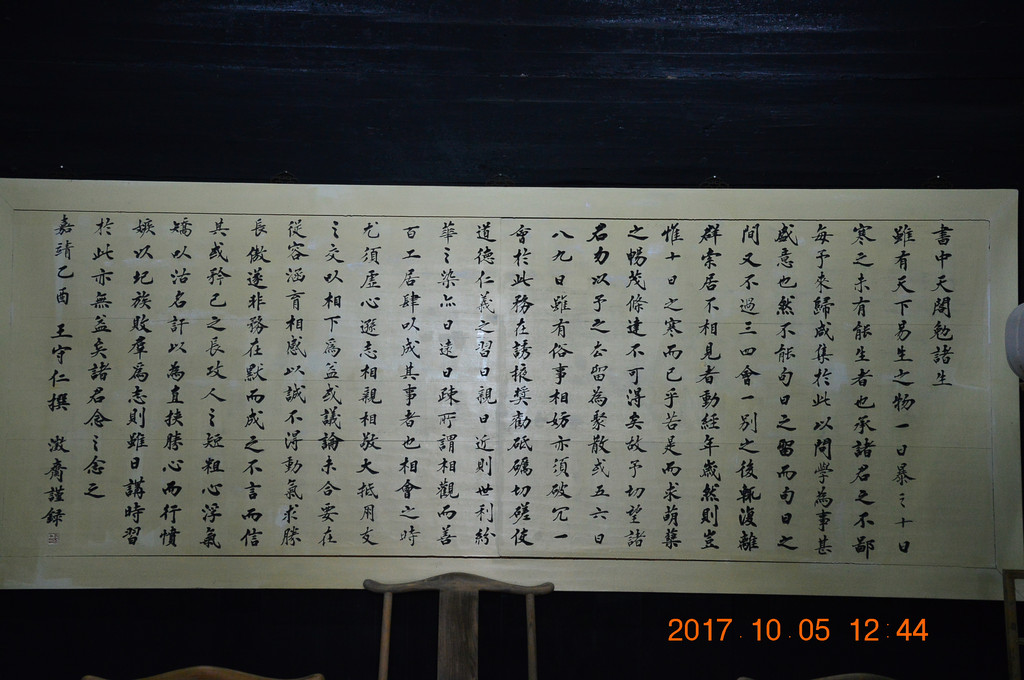 書中天閣勉諸生
雖有天下易生之物一日暴之十日
寒之未有能生者也承諸君之不鄙
每予來歸咸集於此以問學為事甚
盛意也然不能旬日之留而旬日之
間又不過三四會一別之後輒復離
群索居不相見者動經年歲然則豈
惟十日之寒而已乎若是而求萌蘖
之暢茂條達不可得矣故予切望諸
君勿以予之去留為聚散或五六日
八九日雖有俗事相妨亦須破冗一
會於此務在誘掖獎勸砥礪切磋使
道德仁義之習日親日近則世利紛
華之染亦日遠日疎所謂相觀而善
百工居肆以成其事者也相會之時
尤須虛心遜志相親相敬大抵朋友
之交以相下為益或議論未合要在
從容涵育相感以誠不得動氣求勝
長傲遂非務在默而成之不言而信
其或矜己之長攻人之短粗心浮氣
矯以沽名訐以為直挾勝心而行憤
嫉以圮族敗群為志則雖日講時習
於此亦無益矣諸君念之念之
嘉靖乙酉 王守仁撰 澂齋謹録
2017.10.05 12:44